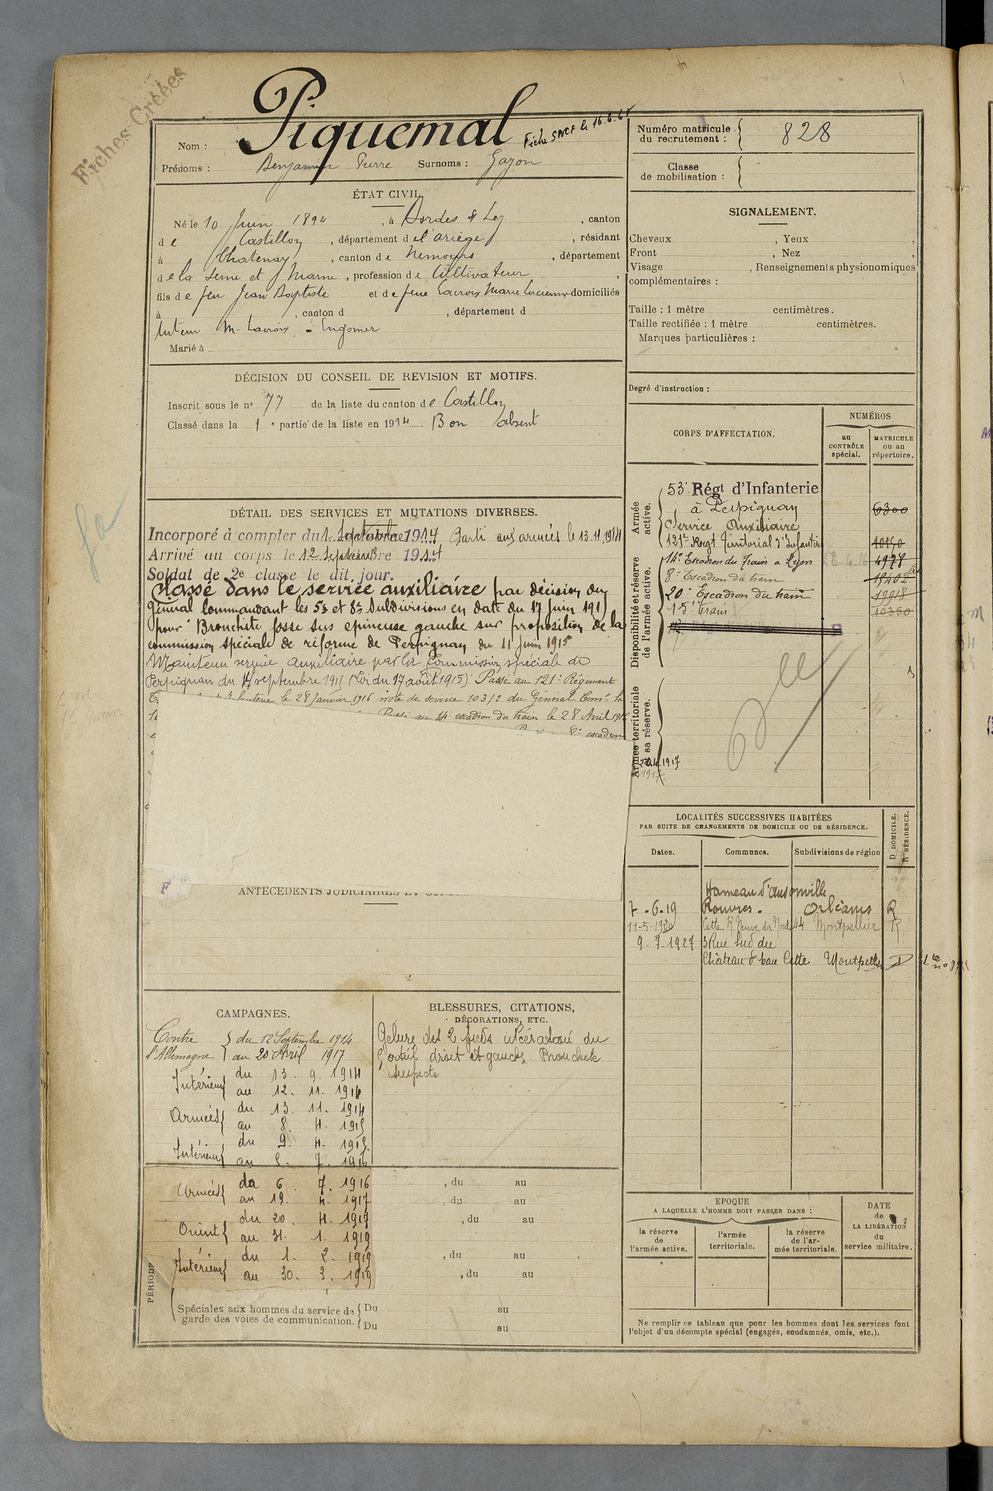 Fiches Créées
Piquemal
Fiche SNCF le 16.6.61
Nom :
Prénoms : Benjamin Pierre Surnoms : Gazon
Numéro matricule du recrutement : 828
Classe de mobilisation :
ÉTAT CIVIL
Né le 10 Juin 1894, à Bordes s/ Lez, canton
de Castillon, département de l'ariège, résidant
à Chatenay, canton de Nemours, département
de la Seine et Marne, profession de Cultivateur
fils de feu Jean Baptiste et de feue Lacroix Marie Lucienne domiciliés
à , canton d , département d
tuteur M. Lacroix à Engomer
Marié à
SIGNALEMENT.
Cheveux , Yeux ,
Front , Nez ,
Visage , Renseignements physionomiques
complémentaires :
Taille : 1 mètre centimètres.
Taille rectifiée : 1 mètre centimètres.
Marques particulières :
Degré d'instruction :
DÉCISION DU CONSEIL DE REVISION ET MOTIFS.
Inscrit sous le n° 77 de la liste du canton de Castillon
Classé dans la 1e partie de la liste en 1914. Bon absent
DÉTAIL DES SERVICES ET MUTATIONS DIVERSES.
Incorporé à compter du 1 Septembre 1914 Parti aux armées le 13.11.1914
Arrivé au corps le 12 Septembre 1914
Soldat de 2e classe le dit jour.
Classé dans le service auxiliaire par décision du
Général Commandant les 5e et 8e Subdivisions en date du 17 juin 191
pour "Bronchite fosse sus epineuse gauche sur proposition de la
commission spéciale de réforme de Perpignan du 11 juin 1915
Maintenu service auxiliaire par la Commission spéciale de
Perpignan du 14 septembre 1915 (Loi du 17 août 1915). Passé au 121e Régiment
le 28 Janvier 1916 note de service 103/2 du Général Comt la
Passé au 14e escadron du train le 28 Avril 1916
8e escadron
CORPS D'AFFECTATION.
NUMÉROS
au CONTRÔLE spécial.
MATRICULE ou au répertoire.
Armée active.
53e Régt d'Infanterie
à Perpignan 6300
Service Auxiliaire
121e Regt Territorial d'Infanterie
Disponibilité et réserve de l'armée active.
14e Escadron du Train à Lyon
8e Escadron du train
20e Escadron du train 19918
15e Train 10350
Armée territoriale et sa réserve.
LOCALITÉS SUCCESSIVES HABITÉES
PAR SUITE DE CHANGEMENTS DE DOMICILE OU DE RÉSIDENCE.
Dates. Communes. Subdivisions de région D DOMICILE. R RÉSIDENCE.
Hameau d'Ansonville
7-6-19 Rouvres. Orléans R
11-5-1920 Cette R. Neuve du Nord 44 Montpellier R
9-7-1927 3 Rue Sud du
Château d'eau Cette Montpellier D
ANTÉCÉDENTS JUDICIAIRES ET
CAMPAGNES.
Contre l'Allemagne du 12 Septembre 1914
au 20 Avril 1917
Intérieur du 13. 9. 1914
au 12. 11. 1914
Armées du 13. 11. 1914
au 8. 4. 1915
Intérieur du 9. 4. 1915
au 5. 7. 1916
Armées du 6. 7. 1916
au 19. 4. 1917
Orient du 20. 4. 1917
au 31. 1. 1919
Intérieur du 1. 2. 1919
au 30. 3. 1919
BLESSURES, CITATIONS,
DÉCORATIONS, ETC.
Gelure des 2 pieds ulcération du
gros orteil droit et gauche. Bronchite
suspecte
, du au
, du au
, du au
, du au
, du au
PÉRIODE
Spéciales aux hommes du service de garde des voies de communication. Du au
Du au
EPOQUE
A LAQUELLE L'HOMME DOIT PASSER DANS :
la réserve de l'armée active.
l'armée territoriale.
la réserve de l'armée territoriale.
DATE de LA LIBÉRATION du service militaire.
Ne remplir ce tableau que pour les hommes dont les services font
l'objet d'un décompte spécial (engagés, condamnés, omis, etc.).